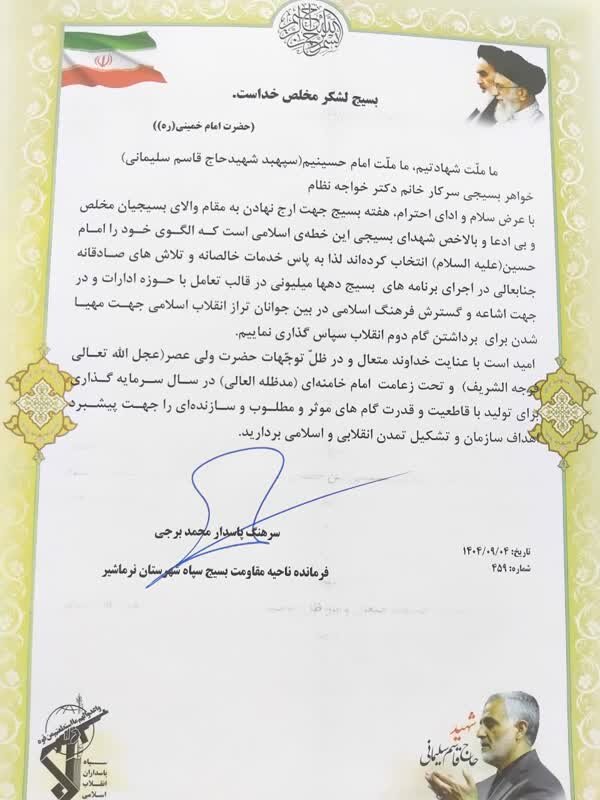 بسیج لشکر مخلص خداست.
(حضرت امام خمینی(ره))
ما ملّت شهادتیم، ما ملت امام حسینیم(سپهبد شهیدحاج قاسم سلیمانی)
خواهر بسیجی سرکار خانم دکتر خواجه نظام
با عرض سلام و ادای احترام، هفته بسیج جهت ارج نهادن به مقام والای بسیجیان مخلص
و بی ادعا و بالاخص شهدای بسیجی این خطه‌ی اسلامی است که الگوی خود را امام
حسین(علیه السلام) انتخاب کرده‌اند لذا به پاس خدمات خالصانه و تلاش های صادقانه
جنابعالی در اجرای برنامه های بسیج دهها میلیونی در قالب تعامل با حوزه ادارات و در
جهت اشاعه و گسترش فرهنگ اسلامی در بین جوانان تراز انقلاب اسلامی جهت مهیا
شدن برای برداشتن گام دوم انقلاب سپاس گذاری نماییم.
امید است با عنایت خداوند متعال و در ظلّ توجّهات حضرت ولی عصر(عجل الله تعالی
فرجه الشریف) و تحت زعامت امام خامنه‌ای (مدظله العالی) در سال سرمایه گذاری
برای تولید با قاطعیت و قدرت گام های موثر و مطلوب و سازنده‌ای را جهت پیشبرد
اهداف سازمان و تشکیل تمدن انقلابی و اسلامی بردارید.
سرهنگ پاسدار محمد برجی
فرمانده ناحیه مقاومت بسیج سپاه شهرستان نرماشیر
تاریخ: ۱۴۰۴/۰۹/۰۴
شماره: ۴۵۹
شهید
حاج قاسم سلیمانی
سپاه
پاسداران
انقلاب
اسلامی